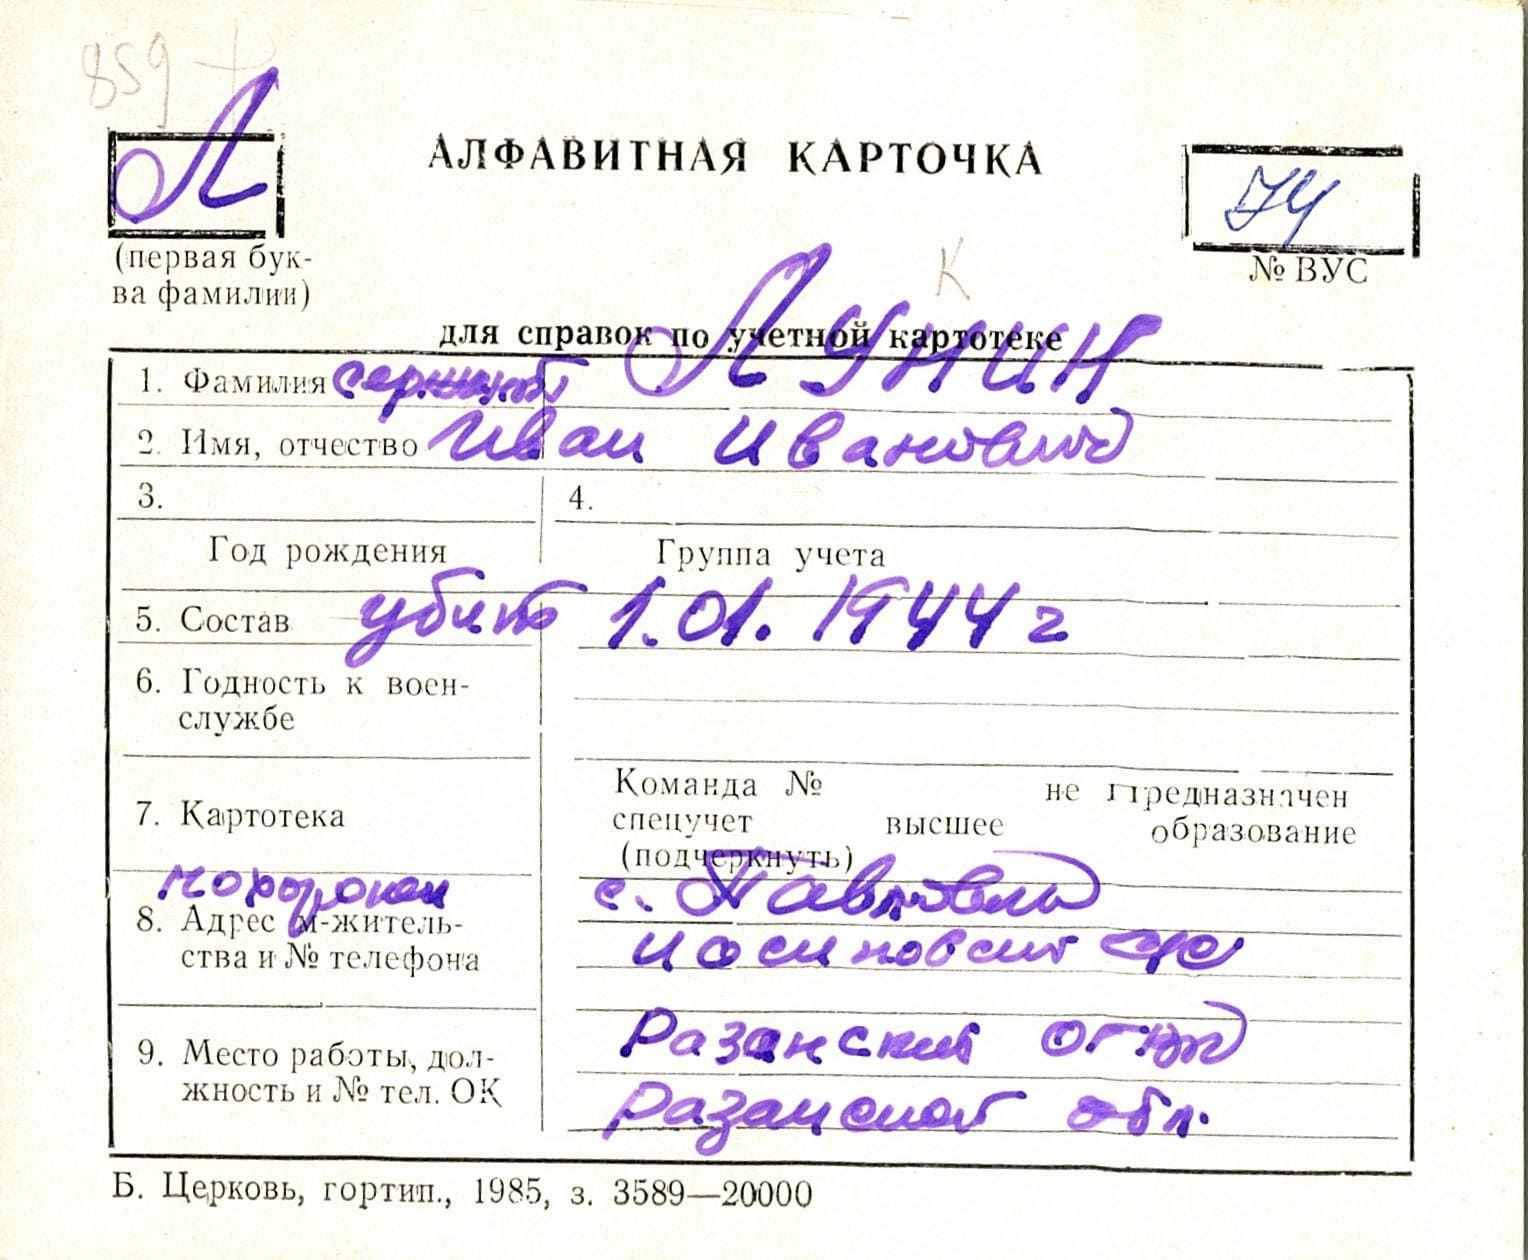 859 +
Л
АЛФАВИТНАЯ КАРТОЧКА
74
(первая бук-
ва фамилии)
№ ВУС
К
для справок по учетной картотеке
Лунин
1. Фамилия сержант
2. Имя, отчество Иван Иванович
3. 4.
Год рождения Группа учета
5. Состав убит 1.01.1944 г
6. Годность к воен-
службе
Команда № не предназначен
7. Картотека
спецучет высшее образование
(подчеркнуть)
похоронен с.
8. Адрес м-житель-
ства и № телефона
Разанский
9. Место работы, дол-
жность и № тел. ОК
Разанской обл.
Б. Церковь, гортип., 1985, з. 3589—20000